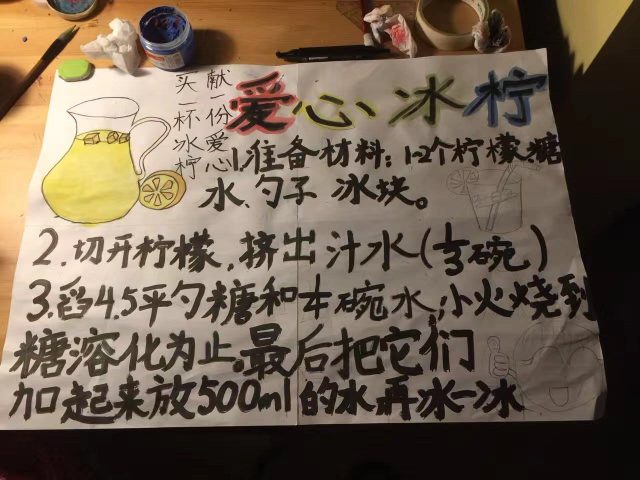 献一份爱心
买一杯冰柠
爱心冰柠
1.准备材料：1-2个柠檬.糖
水、勺子 冰块。
2.切开柠檬，挤出汁水(⅓碗)
3.舀4.5平勺糖和半碗水,小火烧到
糖溶化为止。最后把它们
加起来放500ml的水,再冰一冰